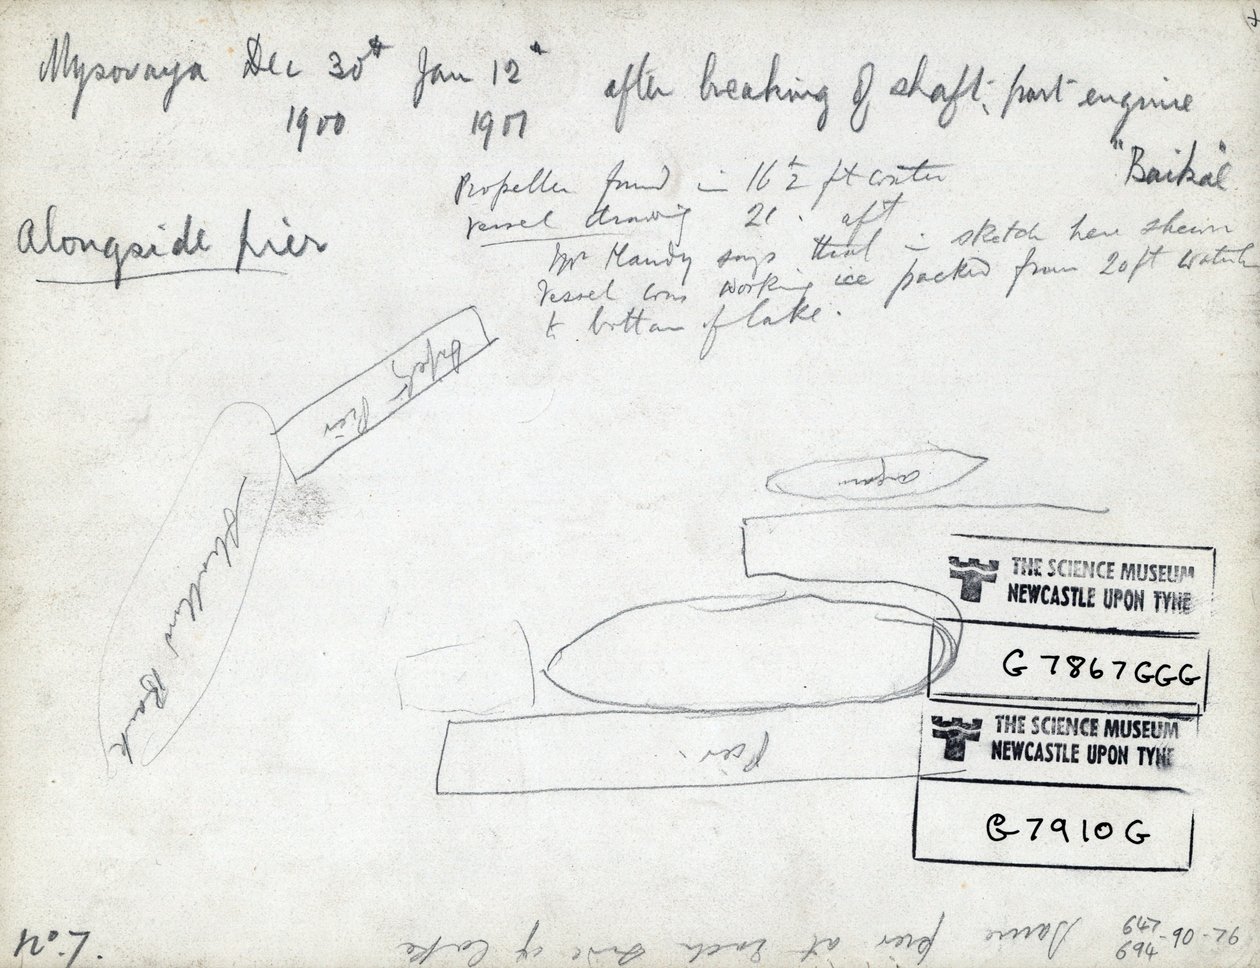 Mysovaya Dec 30th Jan 12th after breaking of shaft, port engine
1900 1901 "Baikal"
Propeller found in 16 1/2 ft water
vessel drawing 20. aft
Alongside pier
Mr Handy says that in sketch here shewn
vessel was working ice packed from 20ft water
to bottom of lake.
Pier
Angara
Shallow Bank
THE SCIENCE MUSEUM
NEWCASTLE UPON TYNE
G7867GGG
THE SCIENCE MUSEUM
NEWCASTLE UPON TYNE
Pier
G7910G
Same pier at each side of lake
647
694 -90-76